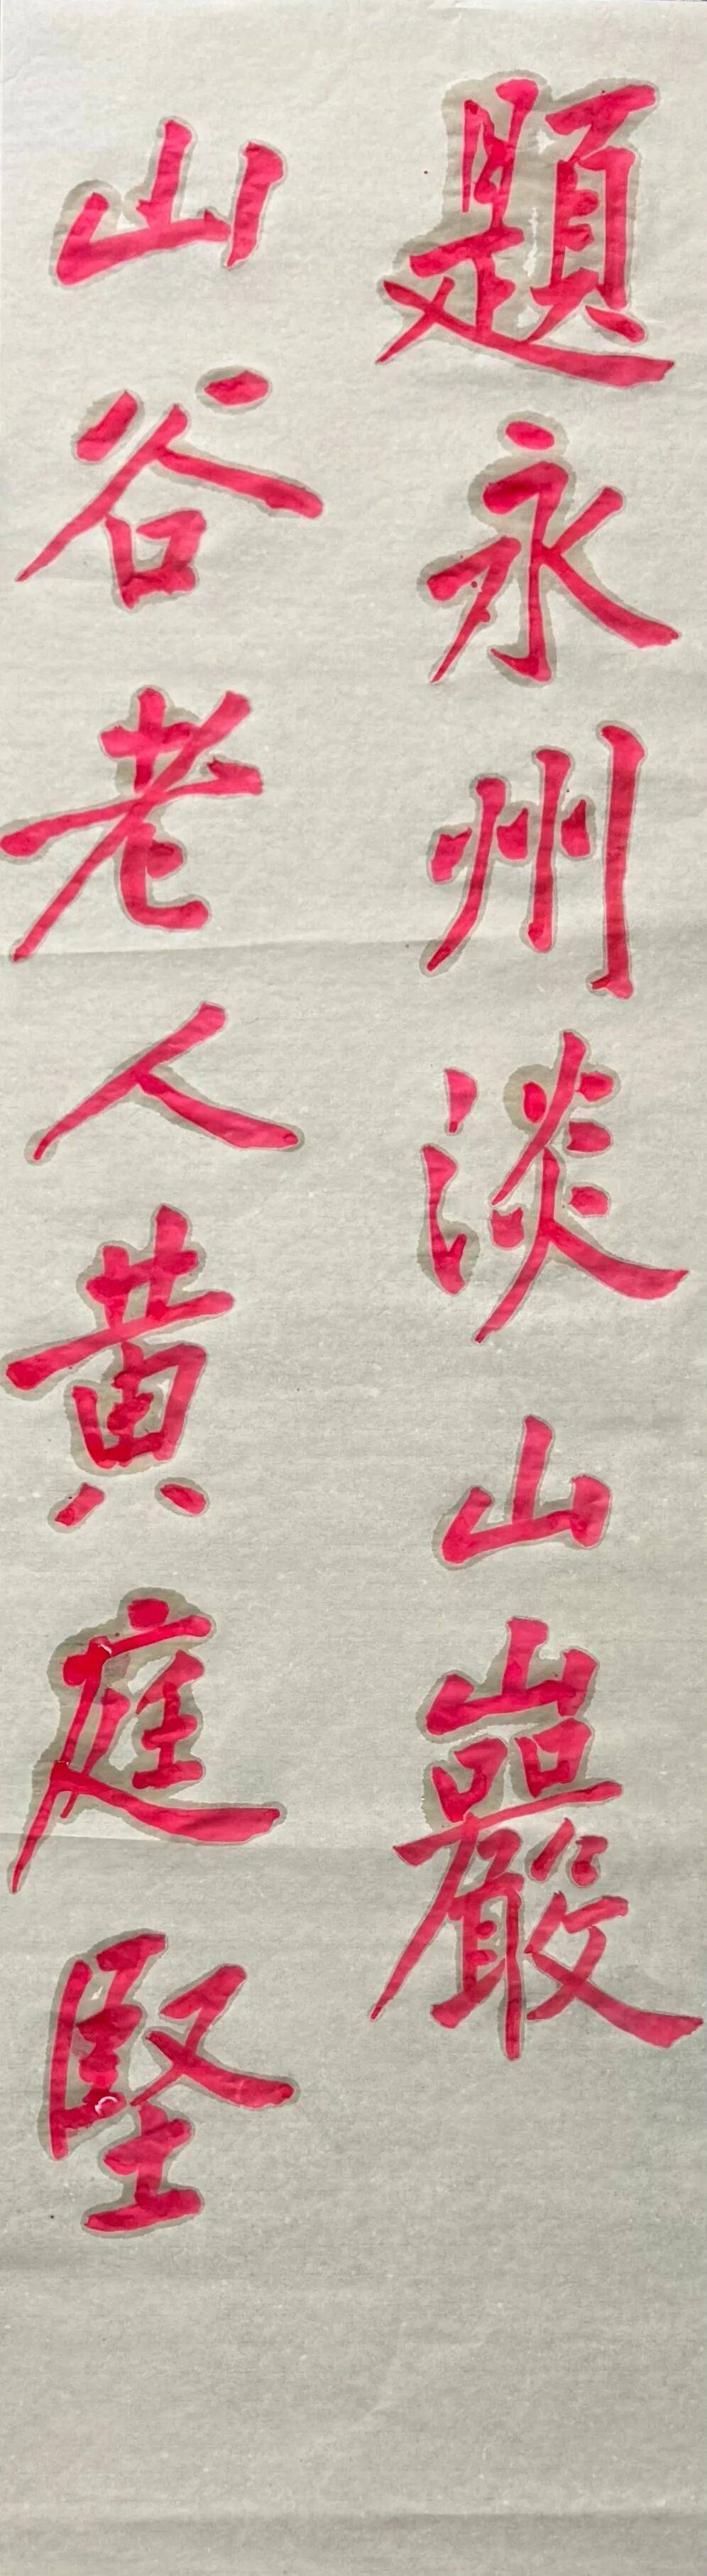 題永州淡山巖
山谷老人黄庭堅